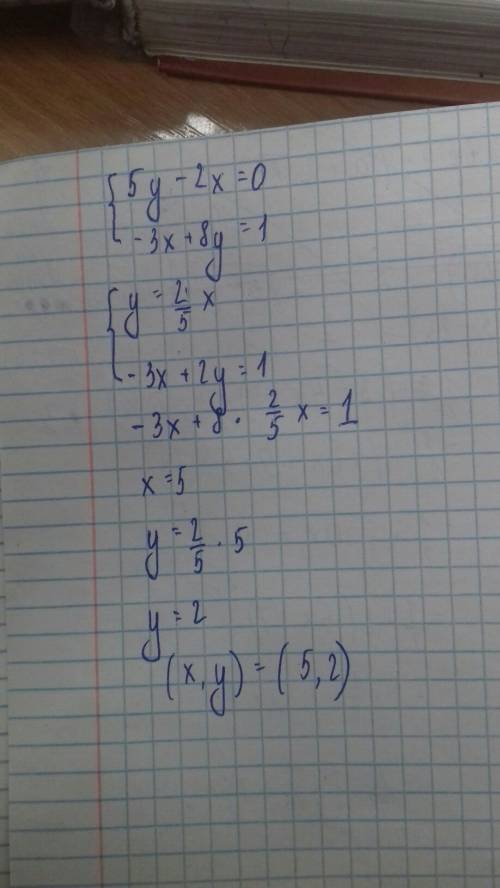 { 5y - 2x = 0
-3x + 8y = 1
{ y = 2/5 x
-3x + 2y = 1
-3x + 8 · 2/5 x = 1
x = 5
y = 2/5 · 5
y = 2
(x, y) = (5, 2)